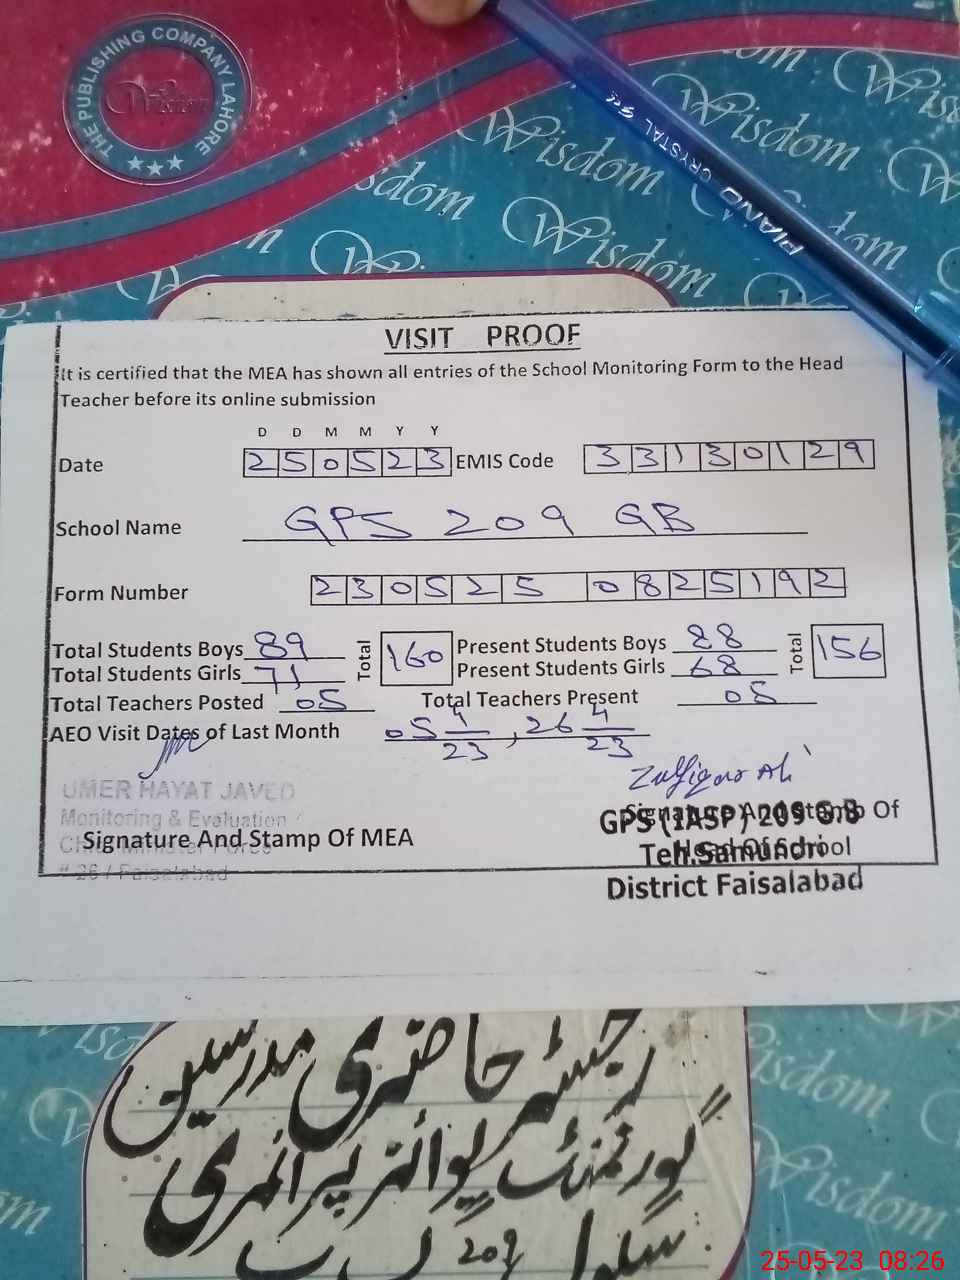 THE PUBLISHING COMPANY LAHORE
Wisdom
PIANO CRYSTAL Gel
VISIT PROOF
It is certified that the MEA has shown all entries of the School Monitoring Form to the Head
Teacher before its online submission
D D M M Y Y
Date 250523 EMIS Code 33130129
School Name GPS 209 GB
Form Number 230525 0825192
Total Students Boys 89 Total 160 Present Students Boys 88 Total 156
Total Students Girls 71 Present Students Girls 68
Total Teachers Posted 05 Total Teachers Present 05
AEO Visit Dates of Last Month 05 4/23, 26 4/23
Zulfiqar Ali
UMER HAYAT JAVED
Monitoring & Evaluation
Signature And Stamp Of MEA
# 26 / Faisalabad
Signature And Stamp Of
Head Of School
GPS (IASP) 209 G.B
Teh.Samundri
District Faisalabad
رجسٹر حاضری مدرسین
گورنمنٹ بوائز پرائمری
سکول 209 گ ب
25-05-23 08:26